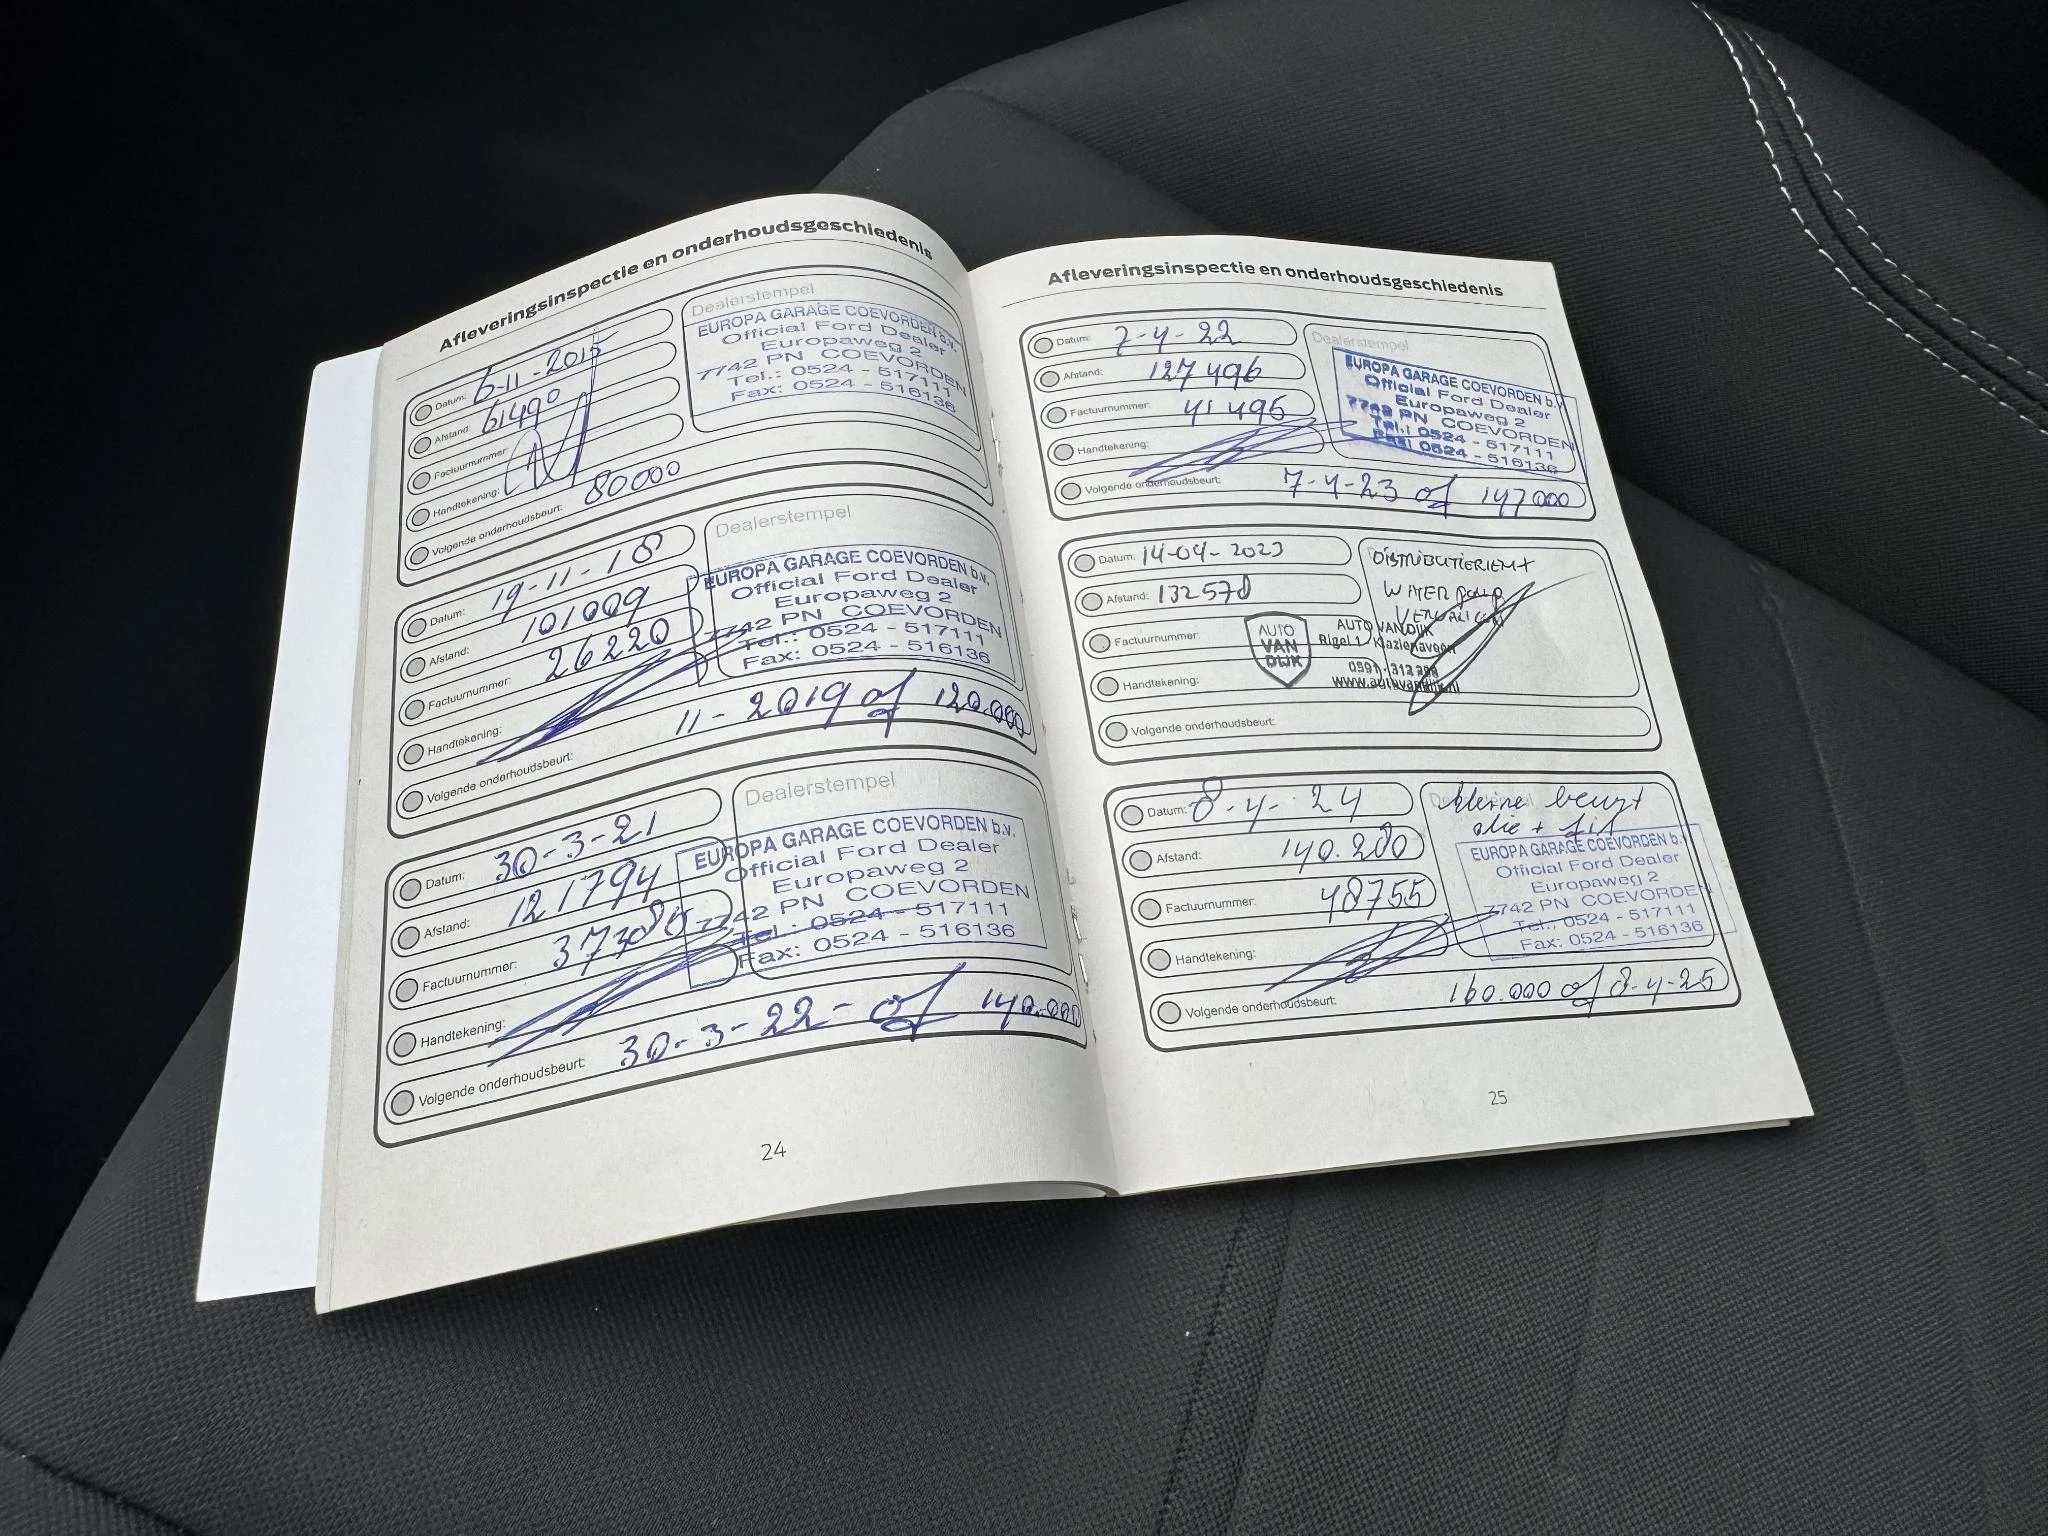 Afleveringsinspectie en onderhoudsgeschiedenis
Datum: 6-11-2015
Afstand: 61490
Factuurnummer:
Handtekening:
Volgende onderhoudsbeurt: 80000
Dealerstempel
EUROPA GARAGE COEVORDEN b.v.
Official Ford Dealer
Europaweg 2
7742 PN COEVORDEN
Tel.: 0524 - 517111
Fax: 0524 - 516136
Datum: 19-11-18
Afstand: 101009
Factuurnummer: 26220
Handtekening:
Volgende onderhoudsbeurt: 11-2019 of 120.000
Dealerstempel
EUROPA GARAGE COEVORDEN b.v.
Official Ford Dealer
Europaweg 2
7742 PN COEVORDEN
Tel.: 0524 - 517111
Fax: 0524 - 516136
Datum: 30-3-21
Afstand: 121794
Factuurnummer:
Handtekening:
Volgende onderhoudsbeurt: 30-3-22- of 140.000
Dealerstempel
EUROPA GARAGE COEVORDEN b.v.
Official Ford Dealer
Europaweg 2
7742 PN COEVORDEN
Tel.: 0524 - 517111
Fax: 0524 - 516136
24
Afleveringsinspectie en onderhoudsgeschiedenis
Datum: 7-4-22
Afstand: 127496
Factuurnummer: 41496
Handtekening:
Volgende onderhoudsbeurt: 7-4-23 of 147000
Dealerstempel
EUROPA GARAGE COEVORDEN b.v.
Official Ford Dealer
Europaweg 2
7742 PN COEVORDEN
Tel.: 0524 - 517111
0524 - 516136
Datum: 14-04-2023
Afstand: 132578
Factuurnummer:
Handtekening:
Volgende onderhoudsbeurt:
DISTRIBUTIERIEM +
WATERpomp
AUTO
VAN
DIJK
AUTO VAN DIJK
Rigel 1 Klazienaveen
0591 - 312
www.autovandijk.nl
Datum: 8-4-24
Afstand: 140.280
Factuurnummer: 48755
Handtekening:
Volgende onderhoudsbeurt: 160.000 of 8-4-25
kleine beurt
olie + fil
EUROPA GARAGE COEVORDEN b.v.
Official Ford Dealer
Europaweg 2
7742 PN COEVORDEN
Tel.: 0524 - 517111
Fax: 0524 - 516136
25